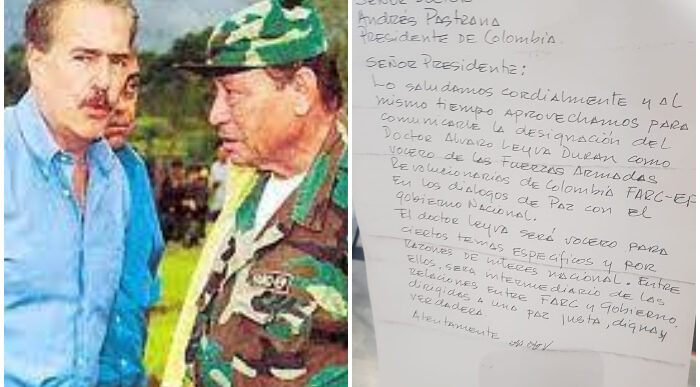 SEÑOR DOCTOR
ANDRÉS PASTRANA
PRESIDENTE DE COLOMBIA.
SEÑOR PRESIDENTE:
LO SALUDAMOS CORDIALMENTE Y AL
MISMO TIEMPO APROVECHAMOS PARA
COMUNICARLE LA DESIGNACIÓN DEL
DOCTOR ALVARO LEYVA DURAN COMO
VOCERO DE LAS FUERZAS ARMADAS
REVOLUCIONARIAS DE COLOMBIA FARC-EP
EN LOS DIALOGOS DE PAZ CON EL
GOBIERNO NACIONAL.
EL DOCTOR LEYVA SERÁ VOCERO PARA
CIERTOS TEMAS ESPECIFICOS Y POR
RAZONES DE INTERES NACIONAL. ENTRE
ELLOS, SERA INTERMEDIARIO DE LAS
RELACIONES ENTRE FARC Y GOBIERNO.
DIRIGIDAS A UNA PAZ JUSTA, DIGNA Y
VERDADERA
ATENTAMENTE